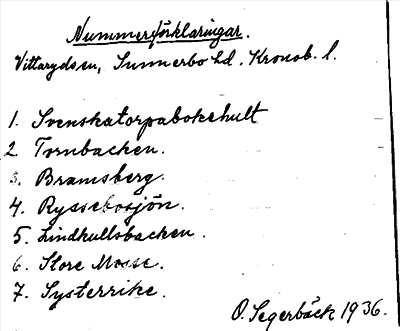 Nummerförklaringar.
Vittarydsn, Sunnerbo hd. Kronob. l.
1. Svenskatorpabokehult
2 Tornbacken.
3. Bramsberg.
4. Ryssebosjön.
5. Lindhultsbacken.
6. Store Mosse.
7. Systerrike.
O. Segerbäck 1936.